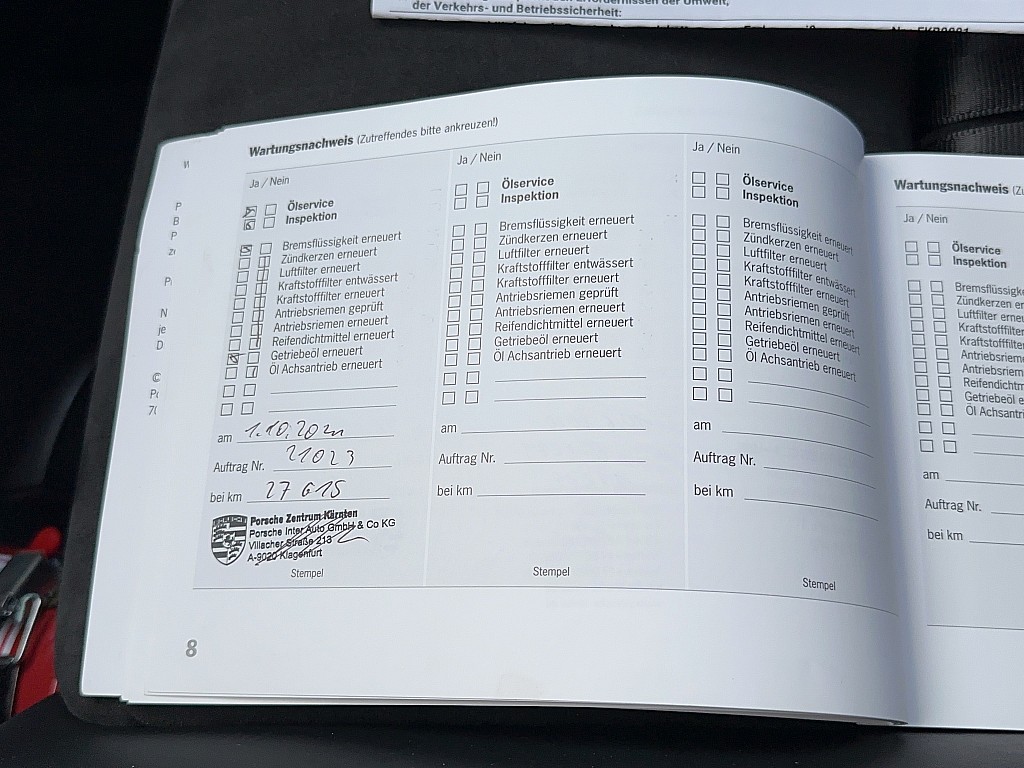 der Verkehrs- und Betriebssicherheit:
Wartungsnachweis (Zutreffendes bitte ankreuzen!)
Ja / Nein
Ölservice
Inspektion
Bremsflüssigkeit erneuert
Zündkerzen erneuert
Luftfilter erneuert
Kraftstofffilter entwässert
Kraftstofffilter erneuert
Antriebsriemen geprüft
Antriebsriemen erneuert
Reifendichtmittel erneuert
Getriebeöl erneuert
Öl Achsantrieb erneuert
am
Auftrag Nr. 21023
bei km 27 615
Porsche Zentrum Kärnten
Porsche Inter Auto GmbH & Co KG
Villacher Straße 213
A-9020 Klagenfurt
Stempel
Ja / Nein
Ölservice
Inspektion
Bremsflüssigkeit erneuert
Zündkerzen erneuert
Luftfilter erneuert
Kraftstofffilter entwässert
Kraftstofffilter erneuert
Antriebsriemen geprüft
Antriebsriemen erneuert
Reifendichtmittel erneuert
Getriebeöl erneuert
Öl Achsantrieb erneuert
am
Auftrag Nr.
bei km
Stempel
Ja / Nein
Ölservice
Inspektion
Bremsflüssigkeit erneuert
Zündkerzen erneuert
Luftfilter erneuert
Kraftstofffilter entwässert
Kraftstofffilter erneuert
Antriebsriemen geprüft
Antriebsriemen erneuert
Reifendichtmittel erneuert
Getriebeöl erneuert
Öl Achsantrieb erneuert
am
Auftrag Nr.
bei km
Stempel
8
Wartungsnachweis (Zu
Ja / Nein
Ölservice
Inspektion
Bremsflüssigke
Zündkerzen er
Luftfilter erneu
Kraftstofffilter
Kraftstofffilter
Antriebsriem
Antriebsriem
Reifendichtm
Getriebeöl e
Öl Achsantri
am
Auftrag Nr.
bei km